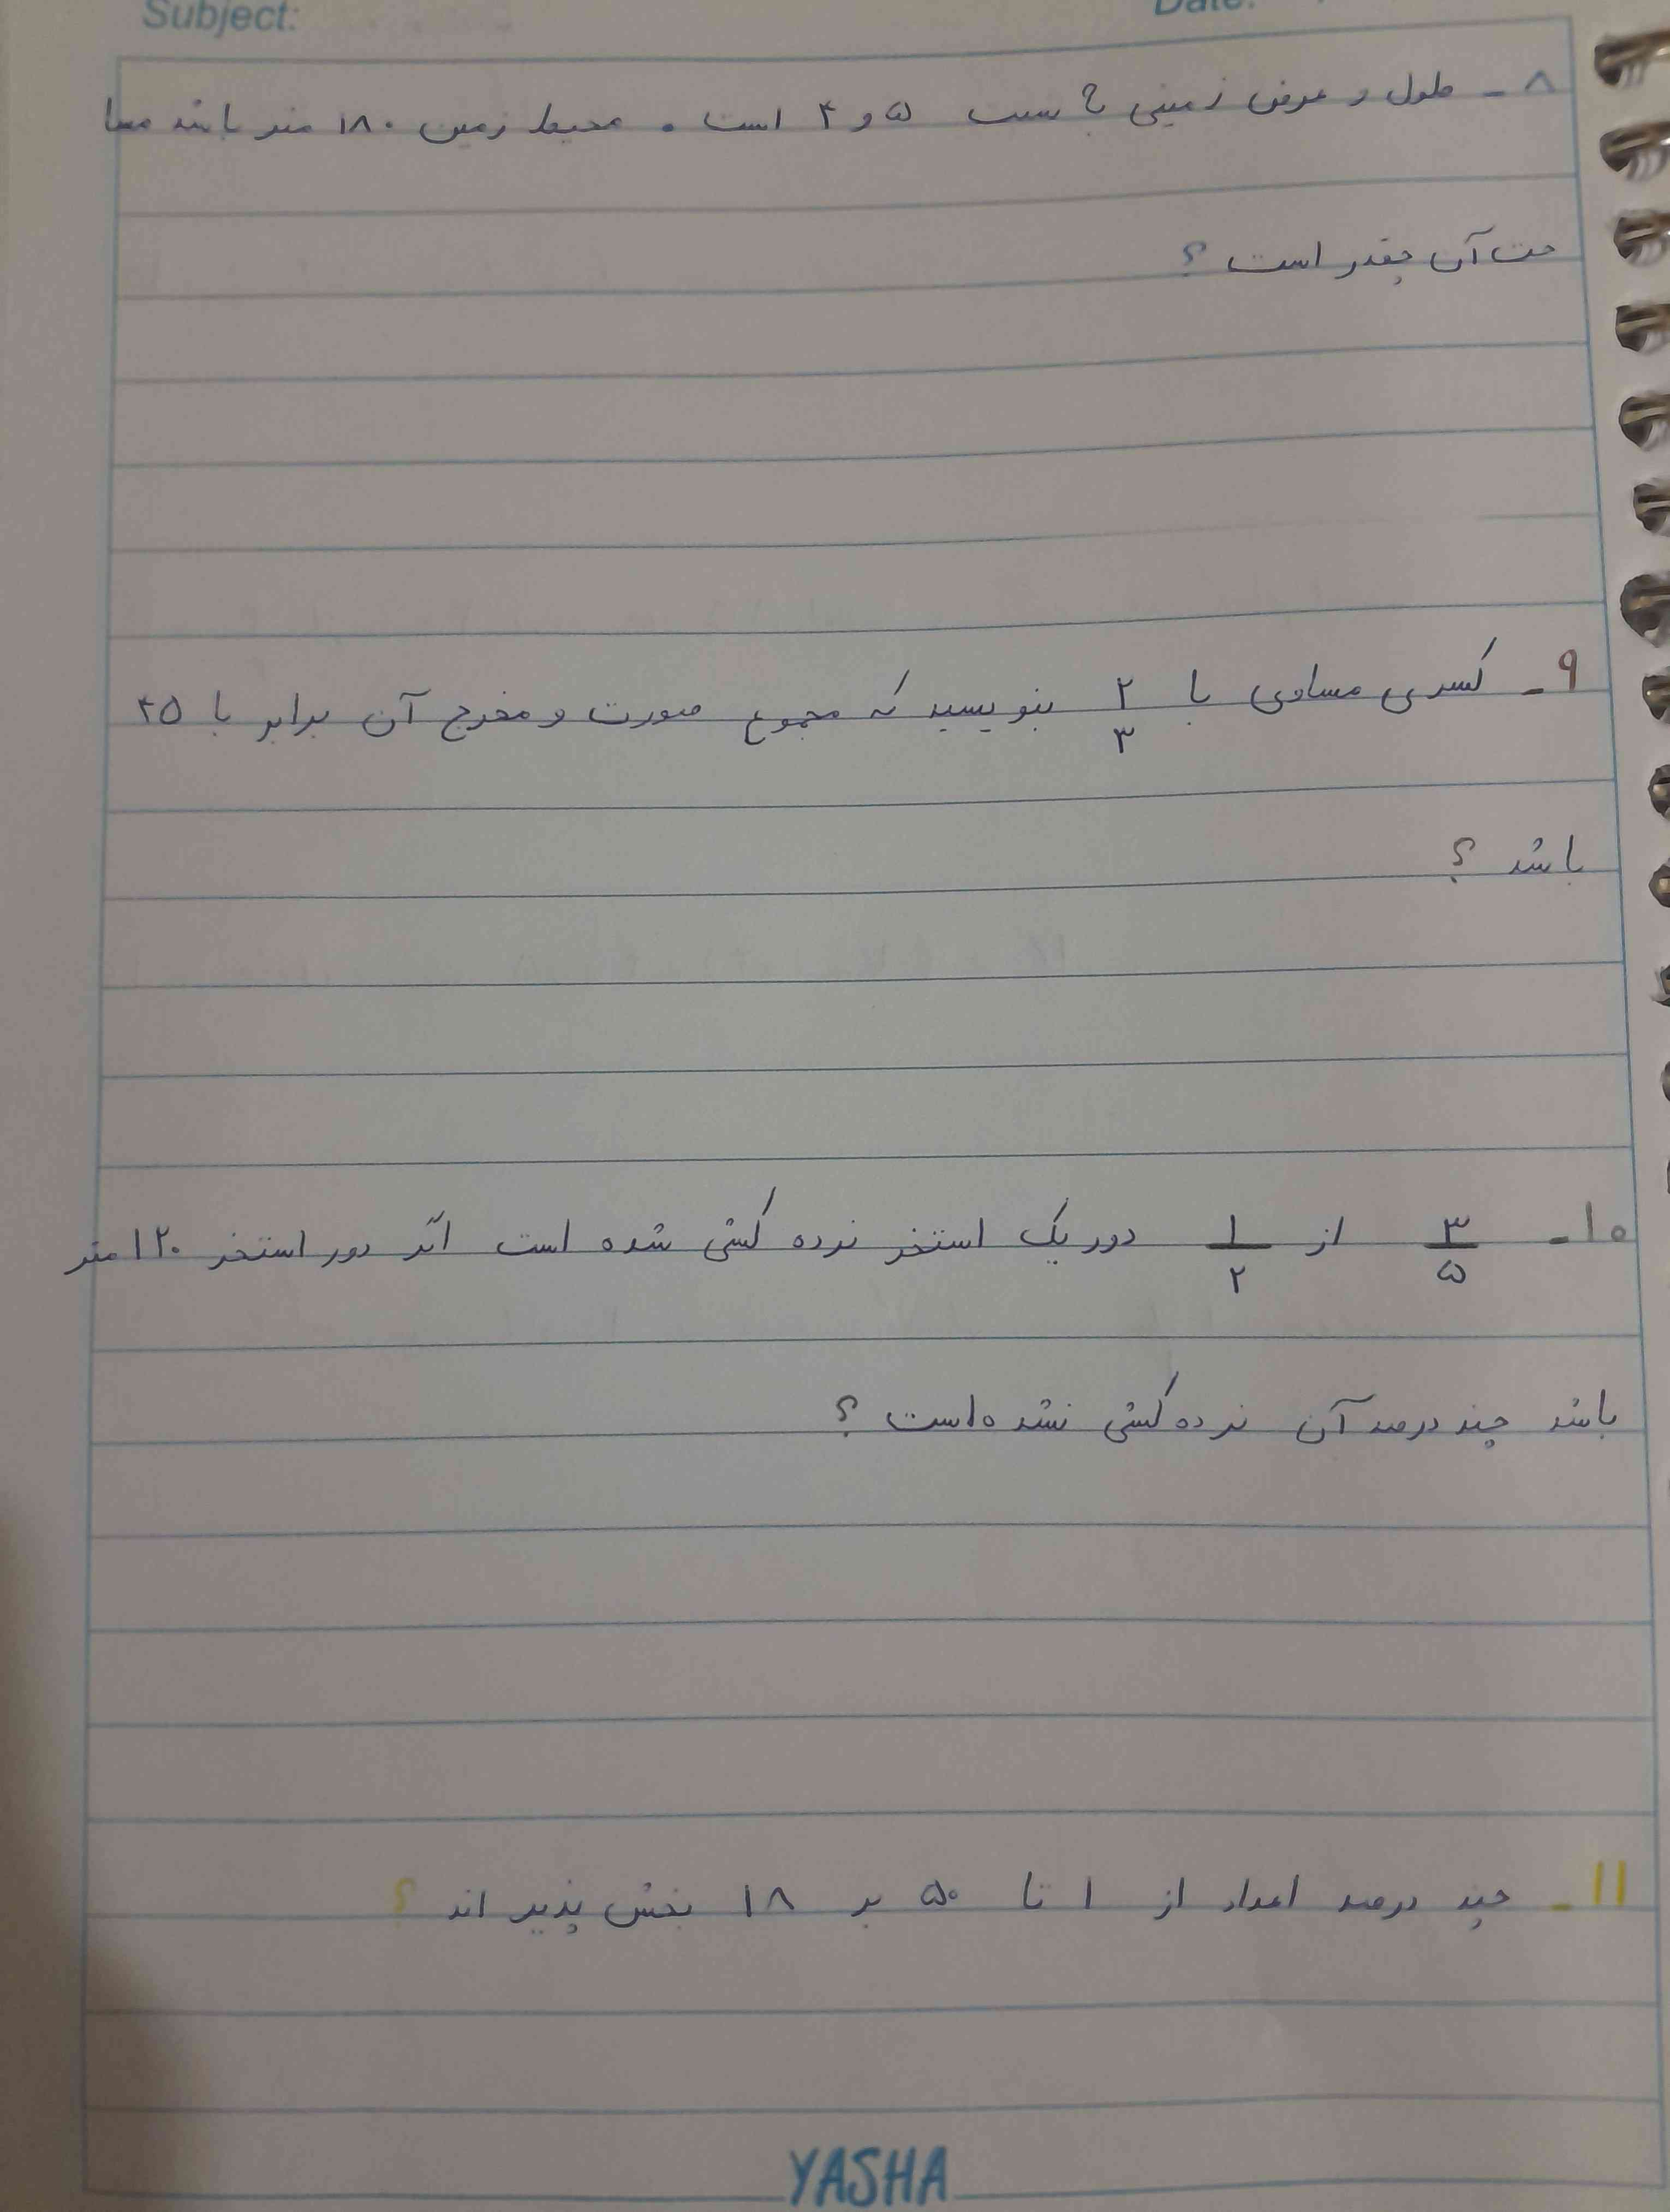 Subject:
Date:
۸ - طول و عرض زمینی به نسبت ۵ و ۴ است . محیط زمین ۱۸۰ متر باشد مسا
حت آن چقدر است ؟
۹ - کسری مساوی با ۲/۳ بنویسید که مجموع صورت و مخرج آن برابر با ۴۵
باشد ؟
۱۰ - ۳/۵ از ۱/۲ دور یک استخر نرده کشی شده است اگر دور استخر ۱۲۰ متر
باشد چند درصد آن نرده کشی نشده است ؟
۱۱ - چند درصد اعداد از ۱ تا ۵۰ بر ۱۸ بخش پذیر اند ؟
YASHA